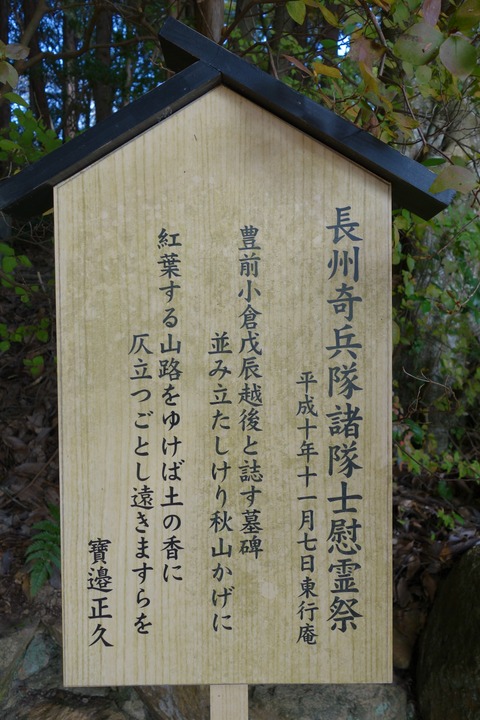 長州奇兵隊諸隊士慰霊祭
平成十年十一月七日東行庵
豊前小倉戊辰越後と誌す墓碑
並み立たしけり秋山かげに
紅葉する山路をゆけば土の香に
仄立つごとし遠きますらを
寶邉正久